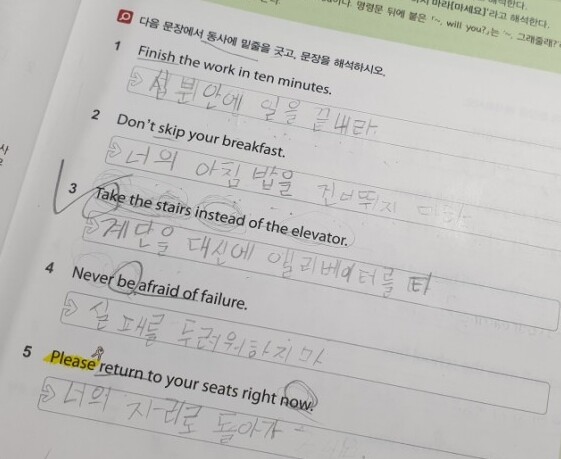 마라[마세요]'라고 해석한다.
명령문 뒤에 붙은 「~, will you?」는 '~, 그래줄래?
다음 문장에서 동사에 밑줄을 긋고, 문장을 해석하시오.
1 Finish the work in ten minutes.
십 분안에 일을 끝내라
2 Don't skip your breakfast.
너의 아침 밥을 건너뛰지 마라
3 Take the stairs instead of the elevator.
계단을 대신에 엘리베이터를 타
4 Never be afraid of failure.
실패를 두려워하지 마
5 Please return to your seats right now.
너의 자리로 돌아가